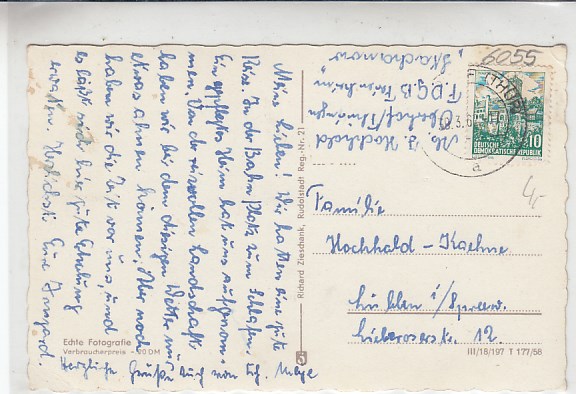 Meine Lieben! Wir hatten eine gute
Reise. In der Bahn Platz zum Schlafen.
Ein gepflegtes Heim hat uns aufgenom-
men. Von der reizvollen Landschaft
haben wir bei dem diesigen Wetter nur
etwas ahnen können. Aber noch
haben wir die Zeit vor uns, und
es läßt sich hier gute Erholung
erwarten. Herzlichst Eure Irmgard.
Herzliche Grüße auch von
Echte Fotografie
Verbraucherpreis –,20 DM
Richard Zieschank, Rudolstadt Reg.-Nr. 21
Abs. J. Hochhald
Oberhof/Thüringen
F.D.G.B. Ferienheim
"Stachanow"
6055
THÜR
a
DEUTSCHE
DEMOKRATISCHE REPUBLIK
10
4,-
Familie
Hochhald - Kaehne
Lübben i/Spreew.
Lieberoserstr. 12.
III/18/197 T 177/58